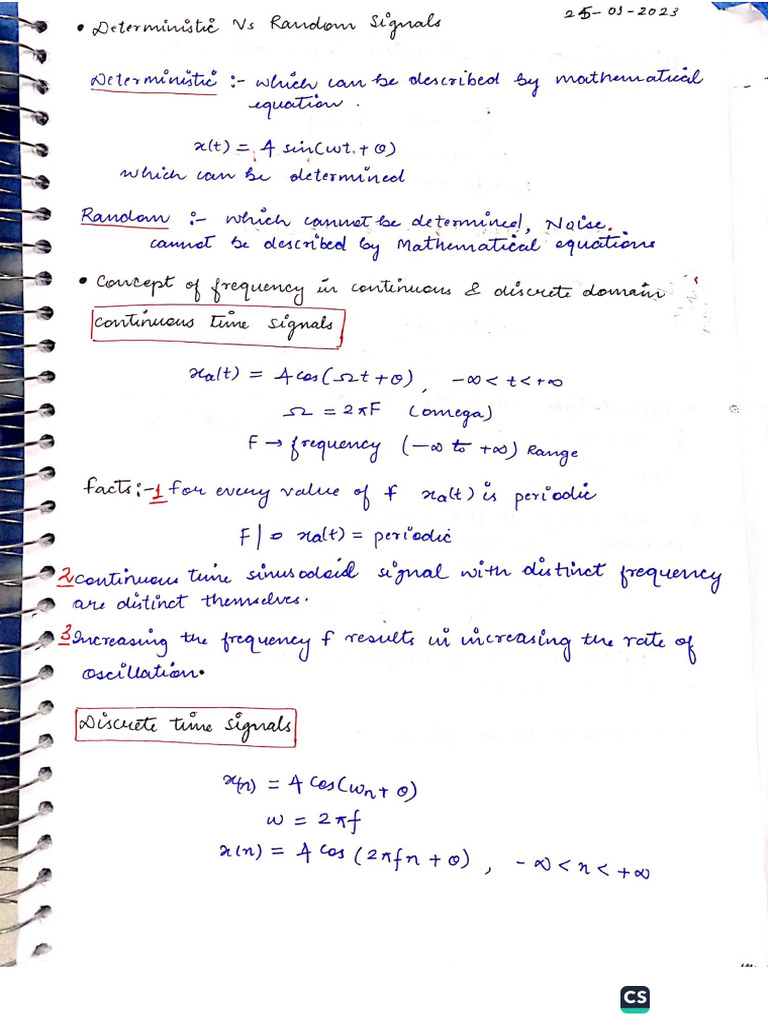 • Deterministic Vs Random Signals
25-09-2023
Deterministic :- which can be described by mathematical
equation.
x(t) = A sin(ωt + θ)
which can be determined
Random :- which cannot be determined, Noise.
cannot be described by Mathematical equations
• Concept of frequency in continuous & discrete domain
continuous time signals
xa(t) = A cos(Ωt + θ), -∞ < t < +∞
Ω = 2πF (omega)
F → frequency (-∞ to +∞) Range
facts:- 1 for every value of f xa(t) is periodic
xa(t) = periodic
2 continuous time sinusodoid signal with distinct frequency
are distinct themselves.
3 Increasing the frequency f results in increasing the rate of
oscillation.
Discrete time signals
x(n) = A cos(ωn + θ)
ω = 2πf
x(n) = A cos(2πfn + θ), -∞ < n < +∞
CS